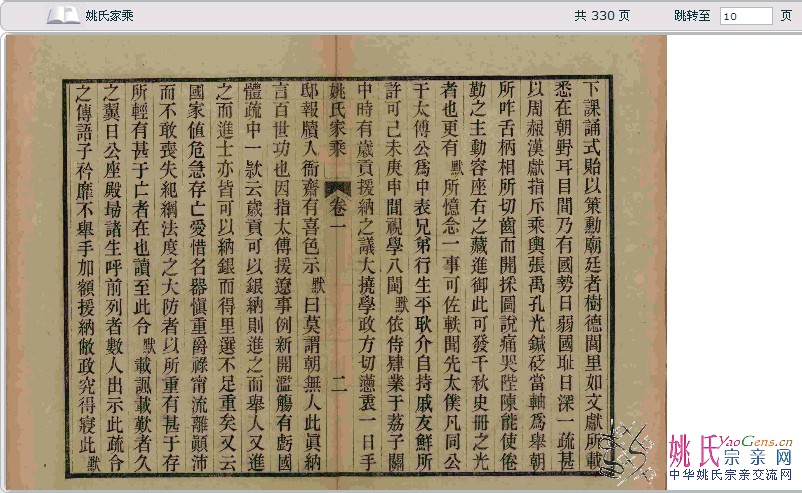 姚氏家乘
共 330 页
跳转至 10 页
下課誦式貽以策勳廟廷者樹德閭里如文獻所載
悉在朝野耳目間乃有國勢日弱國耻日深一疏甚
以周赧漢獻指斥乘輿張禹孔光鍼砭當軸爲舉朝
所咋舌柄相所切齒而開採圖說痛哭陛陳能使倦
勤之主動容座右之藏進御此可發千秋史冊之光
者也更有默所憶念一事可佐軼聞先太僕凡同公
于太傅公爲中表兄弟行生平耿介自持戚友鮮所
許可己未庚申間視學八閩默依侍肄業于荔子關
中時有歲貢援納之議大撓學政方切懣衷一日手
姚氏家乘
卷一
二
邸報牘人衙齋有喜色示默曰莫謂朝無人此眞納
言百世功也因指太傅援遼事例新開濫觴有虧國
體疏中一款云歲貢可以銀納則進之而舉人又進
之而進士亦皆可以納銀而得里選不足重矣又云
國家値危急存亡愛惜名器愼重爵祿甯流離顚沛
而不敢喪失紀綱法度之大防者以所重有甚于存
所輕有甚于亡者在也讀至此合默載諷載歎者久
之翼日公座殿塲諸生呼前列者數人出示此疏合
之傳語子衿靡不舉手加額援納敝政究得寢此默
姚氏宗亲网
YaoGens.cn
中华姚氏宗亲交流网